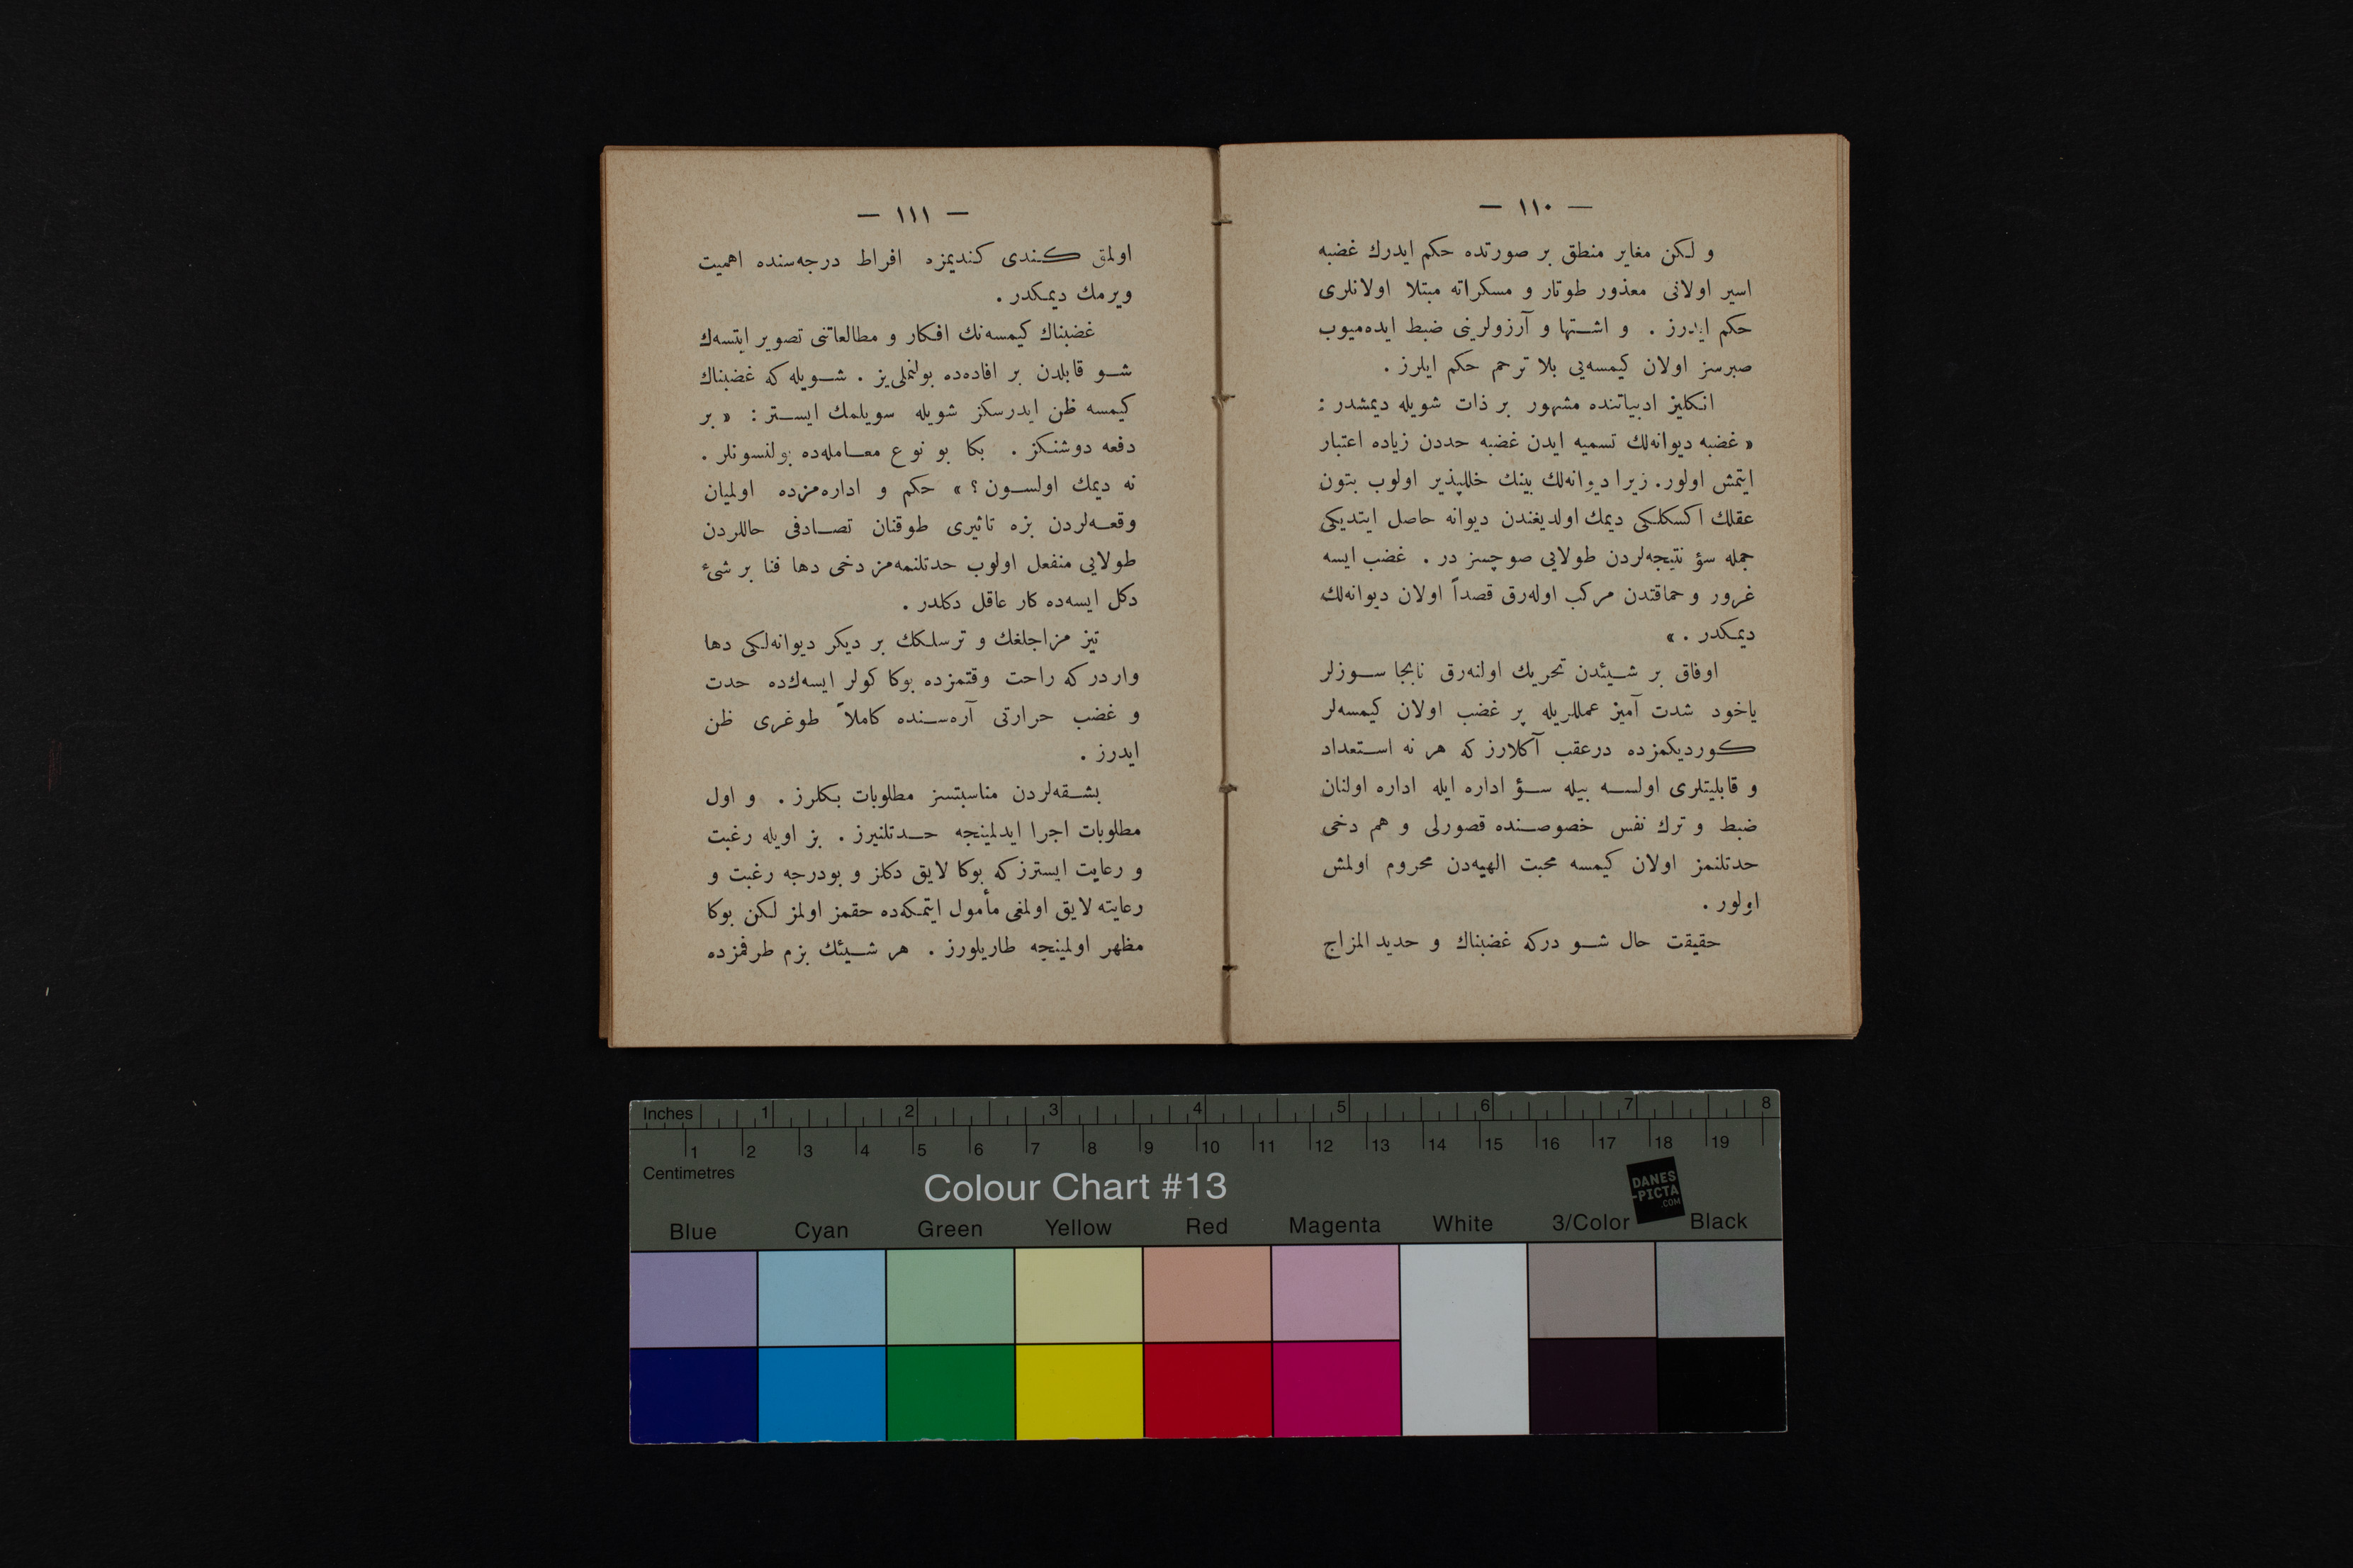 — ١١٠ —
و لكن مغاير منطق بر صورتده حكم ايدرك غضبه
اسير اولانى معذور طوتار و مسكراته مبتلا اولانلرى
حكم ايدرز . و اشتها و آرزولرينى ضبط ايده‌ميوب
صبرسز اولان كيمسه‌يى بلا ترحم حكم ايلرز .
انكليز ادبياتنده مشهور بر ذات شويله ديمشدر :
« غضبه ديوانه‌لك تسميه ايدن غضبه حددن زياده اعتبار
ايتمش اولور. زيرا ديوانه‌لك بينك خللپذير اولوب بتون
عقلك اكسكلكى ديمك اولديغندن ديوانه حاصل ايتديكى
جمله سؤ نتيجه‌لردن طولايى صوچسز در . غضب ايسه
غرور و حماقتدن مركب اوله‌رق قصداً اولان ديوانه‌لك
ديمكدر . »
اوفاق بر شيئدن تحريك اولنه‌رق نابجا سوزلر
ياخود شدت آميز عمللريله پر غضب اولان كيمسه‌لر
كورديكمزده درعقب آكلارز كه هر نه استعداد
و قابليتلرى اولسه بيله سؤ اداره ايله اداره اولنان
ضبط و ترك نفس خصوصنده قصورلى و هم دخى
حدتلنمز اولان كيمسه محبت الهيه‌دن محروم اولمش
اولور .
حقيقت حال شو دركه غضبناك و حديد المزاج
— ١١١ —
اولمق كندى كنديمزه افراط درجه‌سنده اهميت
ويرمك ديمكدر .
غضبناك كيمسه‌نك افكار و مطالعاتنى تصوير ايتسه‌ك
شو قابلدن بر افاده‌ده بولنملى‌يز . شويله كه غضبناك
كيمسه ظن ايدرسكز شويله سويلمك ايستر : « بر
دفعه دوشنكز . بكا بو نوع معامله‌ده بولنسونلر .
نه ديمك اولسون ؟ » حكم و اداره‌مزده اولميان
وقعه‌لردن بزه تاثيرى طوقنان تصادفى حاللردن
طولايى منفعل اولوب حدتلنمه‌مز دخى دها فنا بر شىء
دكل ايسه‌ده كار عاقل دكلدر .
تيز مزاجلغك و ترسلكك بر ديكر ديوانه‌لكى دها
واردر كه راحت وقتمزده بوكا كولر ايسه‌ك‌ده حدت
و غضب حرارتى آره‌سنده كاملاً طوغرى ظن
ايدرز .
بشقه‌لردن مناسبتسز مطلوبات بكلرز . و اول
مطلوبات اجرا ايدلمينجه حدتلنيرز . بز اويله رغبت
و رعايت ايسترز كه بوكا لايق دكلز و بودرجه رغبت و
رعايته لايق اولمغى مأمول ايتمكه‌ده حقمز اولمز لكن بوكا
مظهر اولمينجه طاريلورز . هر شيئك بزم طرفمزده
Inches 1 2 3 4 5 6 7 8
1 2 3 4 5 6 7 8 9 10 11 12 13 14 15 16 17 18 19
Centimetres
Colour Chart #13
DANES
-PICTA
.COM
Blue Cyan Green Yellow Red Magenta White 3/Color Black